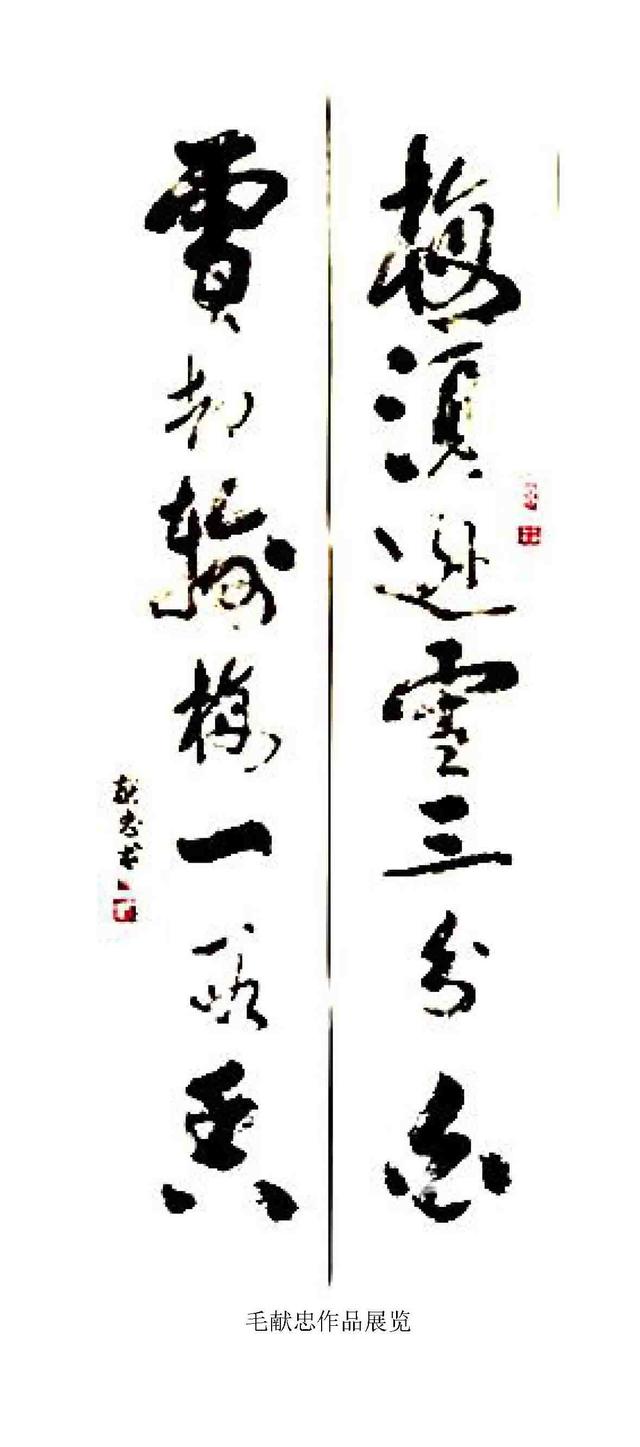 梅須遜雪三分白
雪却輸梅一段香
献忠书
毛献忠作品展览